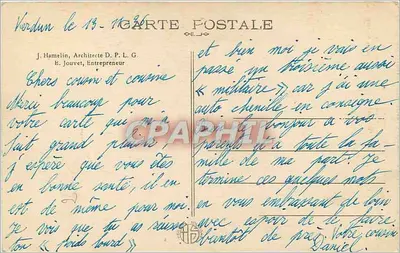 Verdun le 13-11-36
CARTE POSTALE
J. Hamelin, Architecte D. P. L. G.
E. Jouvet, Entrepreneur
Chers cousin et cousine
Merci beaucoup pour
votre carte qui m'a
fait grand plaisir
j'espère que vous êtes
en bonne santé, il en
est de même pour moi.
Je vois que tu as réussi
ton « poids lourd »
et bien moi je vais en
passé un troisième aussi
« militaire » car j'ai une
auto chenille en consigne.
bonjour à vos
parents et à toute la fa-
mille de ma part. Je
termine ces quelques mots
en vous embrassant de loin
avec espoir de le faire
bientot de près. Votre cousin
Daniel.
CPARAMA